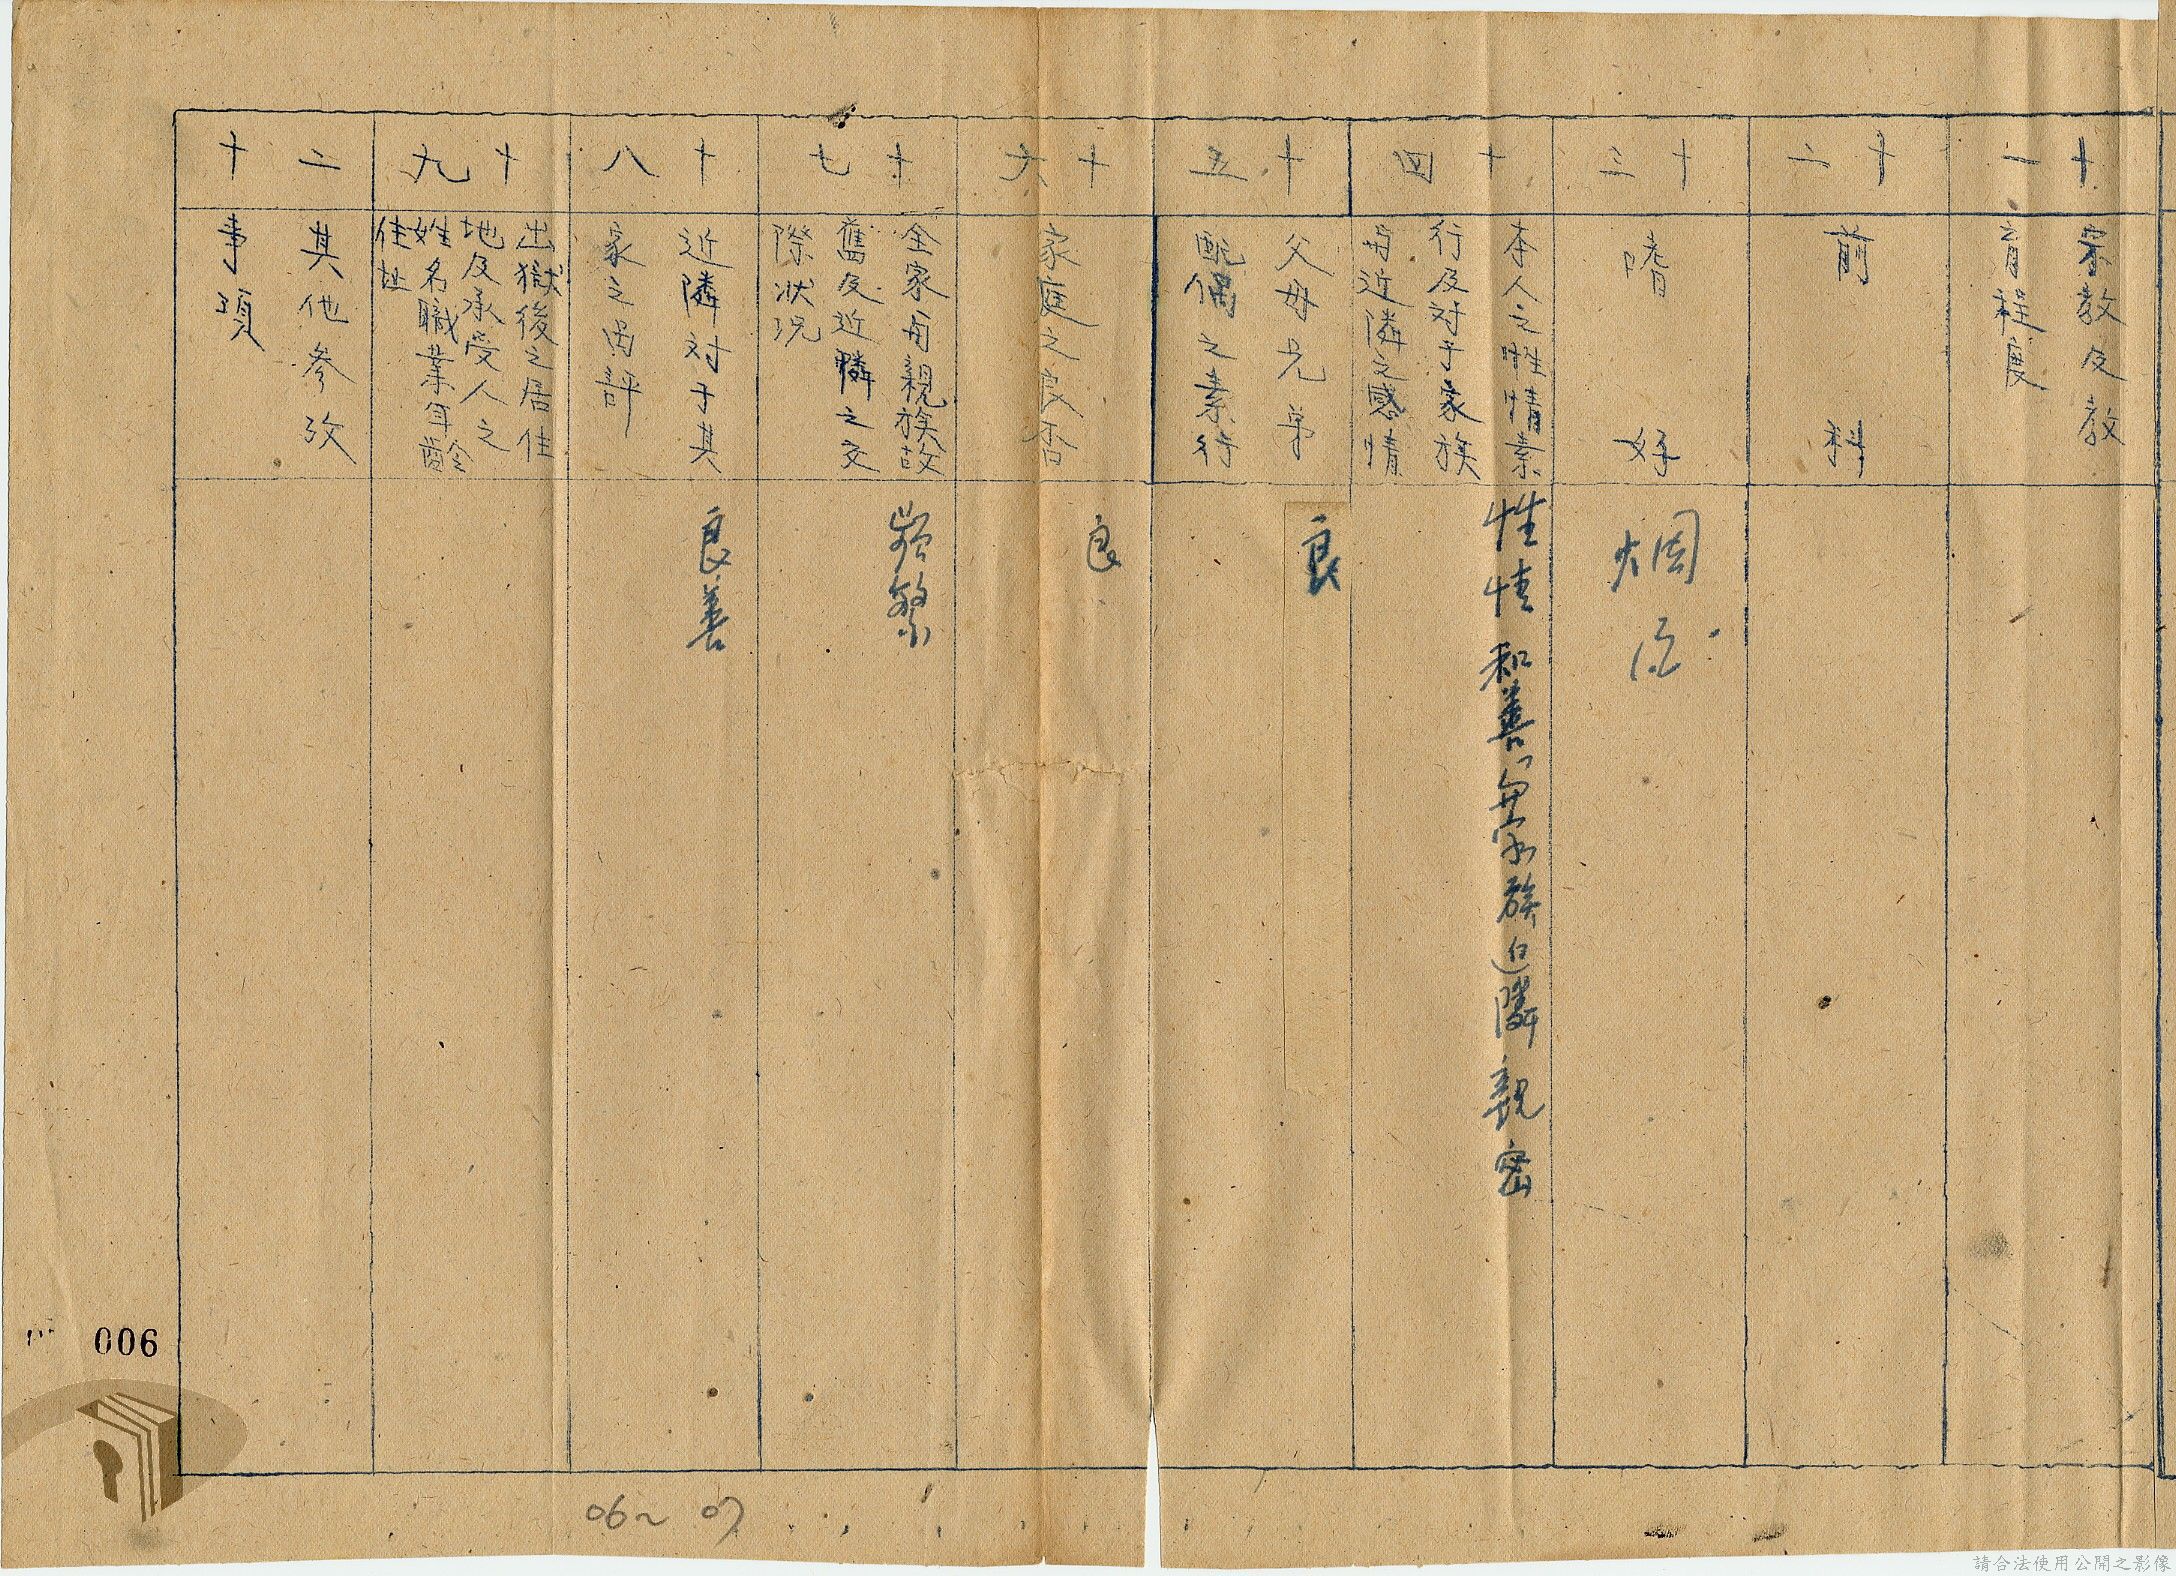 十一
宗教及教
育程度
十二
前科
十三
嗜好
烟酒
十四
本人之性情素
行及対于家族
与近隣之感情
性情和善与家族近隣親密
十五
父母兄弟
配偶之素行
良
十六
家庭之良否
良
十七
全家与親族故
舊及近隣之交
際状况
頻繁
十八
近隣対于其
家之品評
良善
十九
出獄後之居住
地及承受人之
姓名職業年齡
住址
二十
其他參攷
事項
006
06~07
請合法使用公開之影像